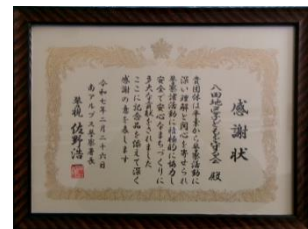 感謝状
八田地区子ども見守る会 殿
貴団体は平素から警察活動に
深い理解と関心を寄せられ
警察諸活動に積極的に協力し
安全で安心なまちづくりに
多大な貢献をされました
ここに記念品を添えて深く
感謝の意を表します
令和七年二月二十六日
南アルプス警察署長
警視 佐野浩